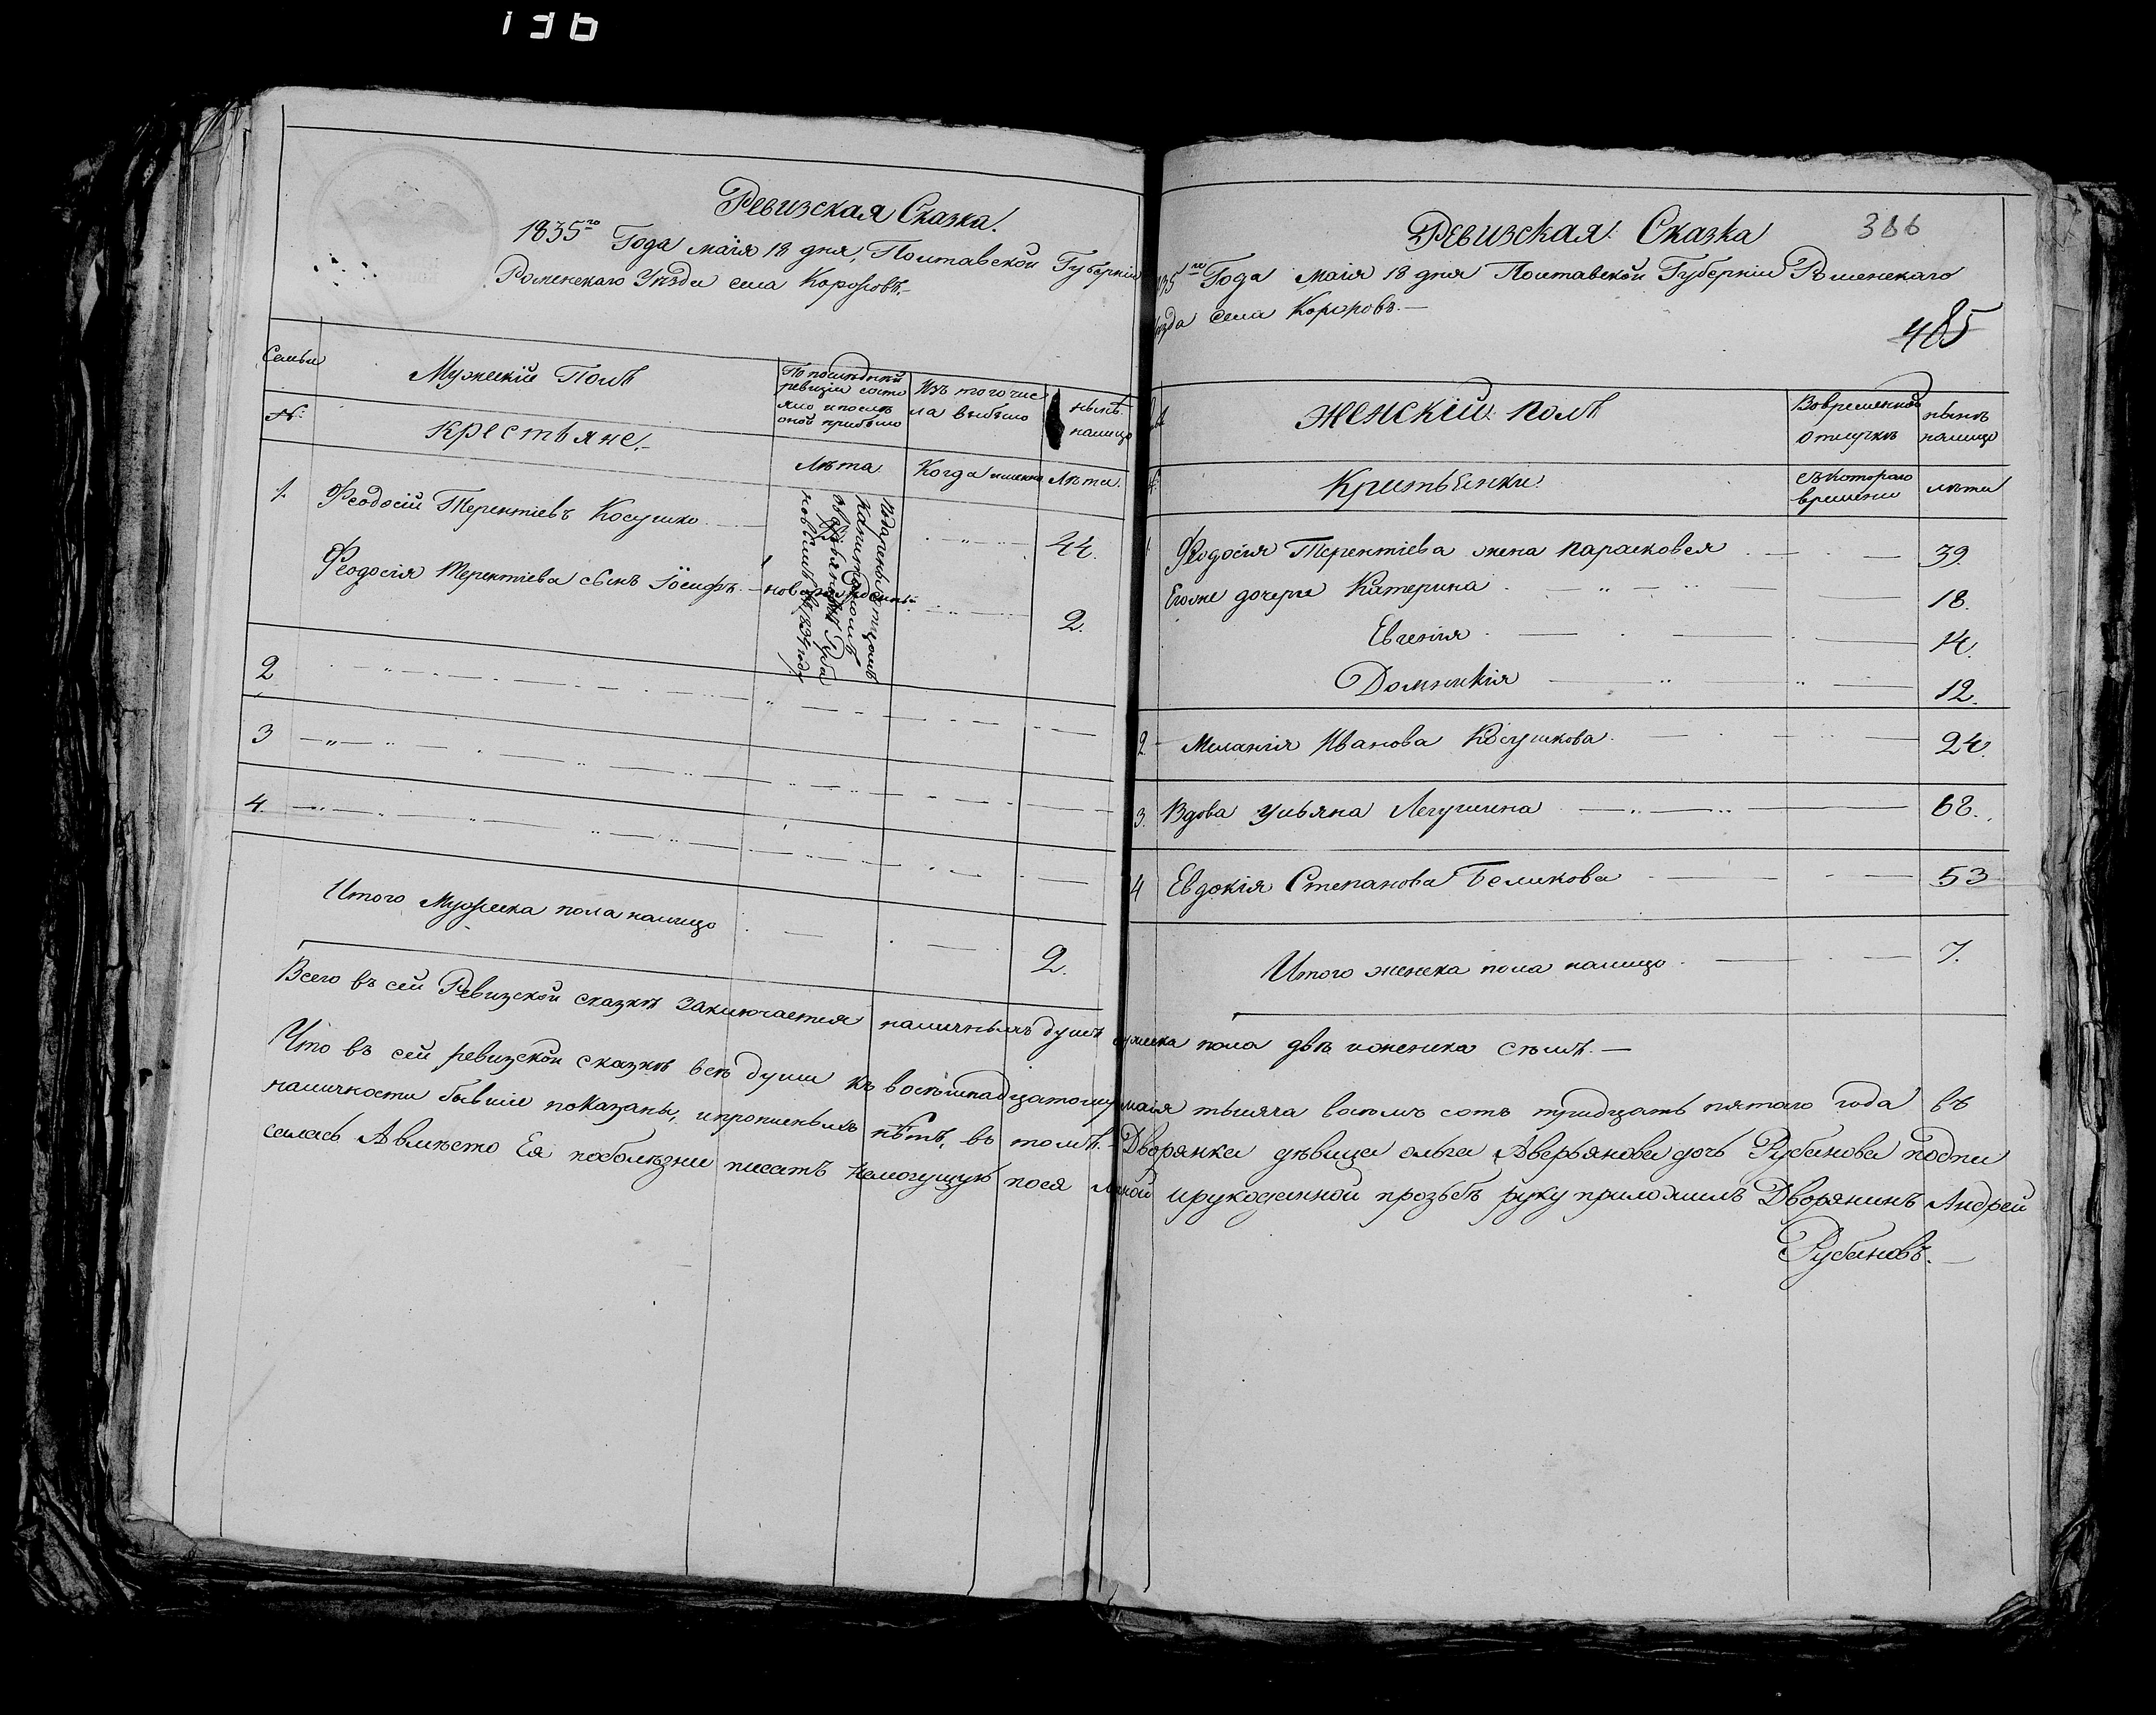 136
Ревизская Сказка.
1835го Года маія 18 дня, Полтавской Губерніи
Роменскаго Уѣзда села Корововъ.
Семьи
Мужескій Полъ
По послѣдней
ревизіи состо
яло и послѣ
оной прибыло
Изъ того чис
ла выбыло
нынѣ
налицо
№:
Крестьяне.
Лѣта
Когда именно
Лѣта.
1. Феодосій Терентіевъ Косушко
44.
Феодосія Терентіева сынъ Іосифъ. новорожденный
2.
2
3
4.
Итого Мужеска пола налицо
2.
Ревизская Сказка
386
835го Года маія 18 дня Полтавской Губерніи Роменскаго
ѣзда села Корововъ.
485
Женскій полъ
Вовременной
отлучкѣ
нынѣ
налицо
Крестьянки.
съ котораго
времени
лѣта
Феодосія Терентіева жена Парасковея 39.
Его же дочери Катерина 18.
Евгенія 14.
Домникія 12.
2. Меланія Иванова Косушкова 24.
3. Вдова Ульяна Легушина 62.
4 Евдокія Степанова Беликова 53
Итого женска пола налицо 7.
Всего въ сей Ревизской сказкѣ заключается наличныхъ душъ мужеска пола двѣ и женска семь.
Что въ сей ревизской сказкѣ всѣ души къ восемнадцатому маія тысяча восемь сотъ тридцать пятаго года въ
наличности бывшіе показаны, и прописныхъ нѣтъ, въ томъ. Дворянка дѣвица Ольга Аверьянова дочь Рубанова подпи
салась А вмѣсто Ея по болѣзни писать немогущую по ея личной и рукоданной прозьбѣ руку приложилъ Дворянинъ Андрей
Рубановъ.